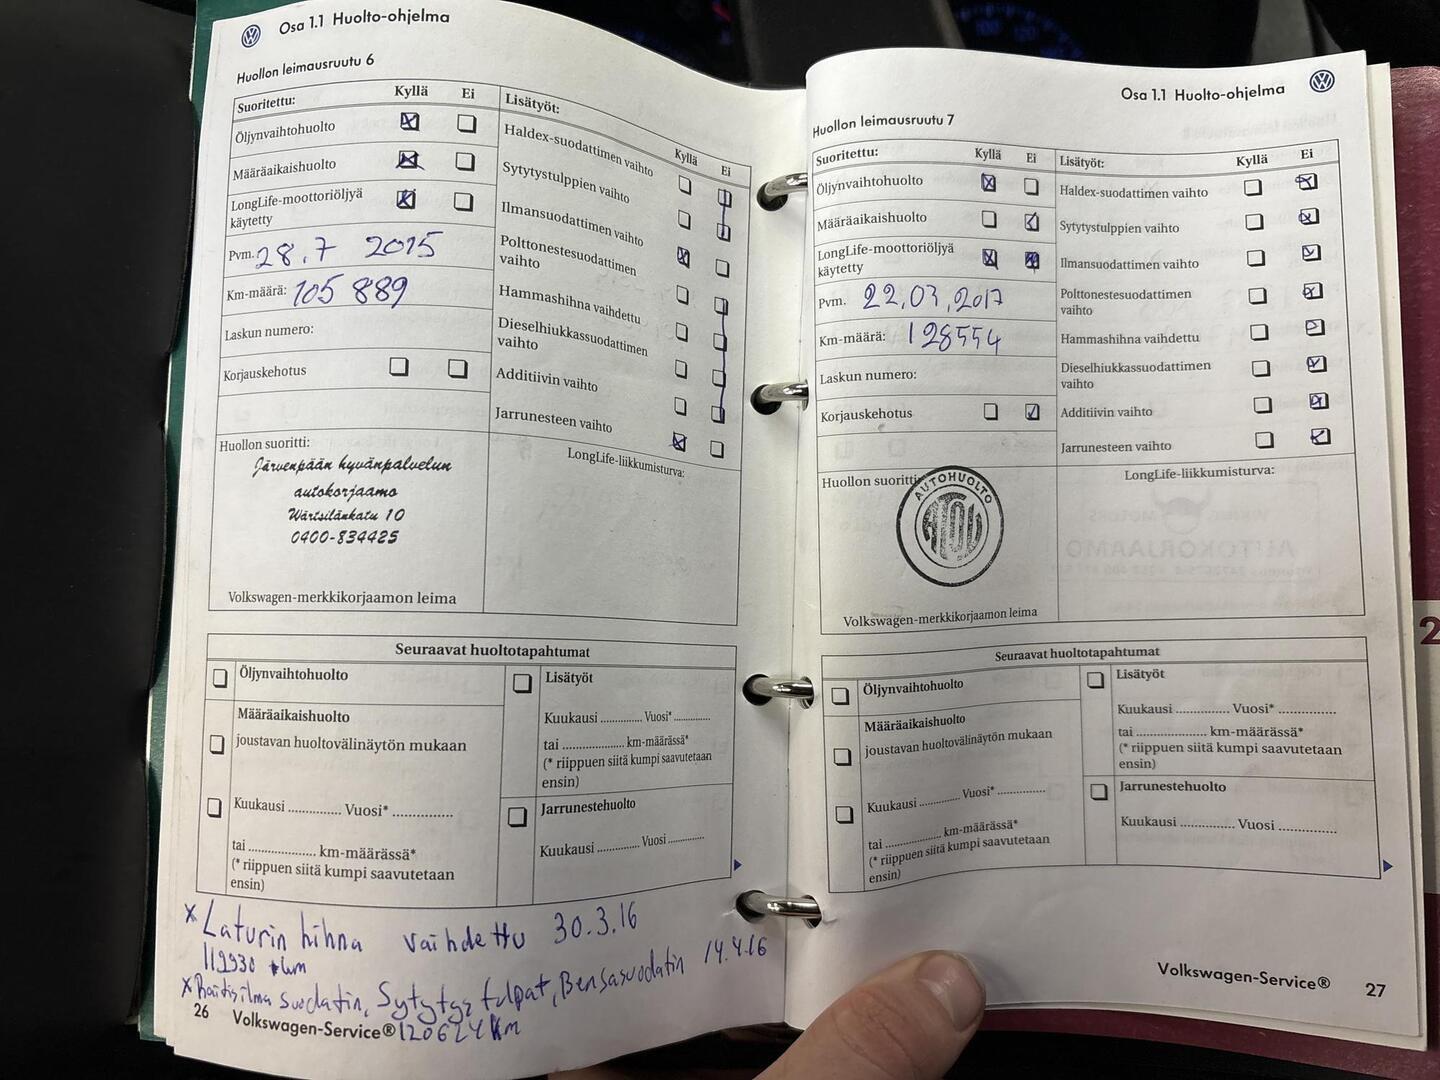 Osa 1.1 Huolto-ohjelma
Huollon leimausruutu 6
Suoritettu: Kyllä Ei
Öljynvaihtohuolto
Määräaikaishuolto
LongLife-moottoriöljyä
käytetty
Pvm. 28.7 2015
Km-määrä: 105 889
Laskun numero:
Korjauskehotus
Lisätyöt: Kyllä Ei
Haldex-suodattimen vaihto
Sytytystulppien vaihto
Ilmansuodattimen vaihto
Polttonestesuodattimen
vaihto
Hammashihna vaihdettu
Dieselhiukkassuodattimen
vaihto
Additiivin vaihto
Jarrunesteen vaihto
Huollon suoritti:
Järvenpään hyvänpalvelun
autokorjaamo
Wärtsilänkatu 10
0400-834425
Volkswagen-merkkikorjaamon leima
LongLife-liikkumisturva:
Seuraavat huoltotapahtumat
Öljynvaihtohuolto
Määräaikaishuolto
joustavan huoltovälinäytön mukaan
Kuukausi .............. Vuosi* ................
tai .................... km-määrässä*
(* riippuen siitä kumpi saavutetaan
ensin)
Lisätyöt
Kuukausi ............. Vuosi* ............
tai ................... km-määrässä*
(* riippuen siitä kumpi saavutetaan
ensin)
Jarrunestehuolto
Kuukausi ............. Vuosi ............
x Laturin hihna vaihdettu 30.3.16
119930 km
x Raitisilma suodatin, Sytytys tulpat, Bensasuodatin 14.4.16
120624 km
26 Volkswagen-Service®
Osa 1.1 Huolto-ohjelma
Huollon leimausruutu 7
Suoritettu: Kyllä Ei
Öljynvaihtohuolto
Määräaikaishuolto
LongLife-moottoriöljyä
käytetty
Pvm. 22.03.2017
Km-määrä: 128554
Laskun numero:
Korjauskehotus
Lisätyöt: Kyllä Ei
Haldex-suodattimen vaihto
Sytytystulppien vaihto
Ilmansuodattimen vaihto
Polttonestesuodattimen
vaihto
Hammashihna vaihdettu
Dieselhiukkassuodattimen
vaihto
Additiivin vaihto
Jarrunesteen vaihto
Huollon suoritti
AUTOHUOLTO
Volkswagen-merkkikorjaamon leima
LongLife-liikkumisturva:
Seuraavat huoltotapahtumat
Öljynvaihtohuolto
Määräaikaishuolto
joustavan huoltovälinäytön mukaan
Kuukausi ............. Vuosi* ...............
tai ................... km-määrässä*
(* riippuen siitä kumpi saavutetaan
ensin)
Lisätyöt
Kuukausi ............... Vuosi* ................
tai ..................... km-määrässä*
(* riippuen siitä kumpi saavutetaan
ensin)
Jarrunestehuolto
Kuukausi ............... Vuosi ................
Volkswagen-Service® 27
2